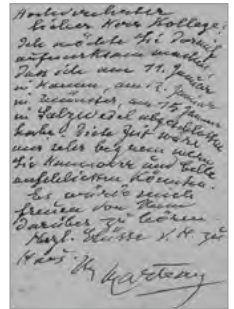 Hochverehrter
lieber Herr Kollege!
Ich möchte Sie darauf
aufmerksam machen,
dass ich am 11. Januar
in Hamm, am 12. Januar
in Münster, am 15. Januar
in Salzwedel abgeschlossen
habe. Diese Zeit wäre
mir sehr bequem wenn
Sie Hannover und Celle
könnten.
Es würde mich
freuen von Ihnen
darüber zu hören.
Herzl. Grüsse v. H. zu
Haus.
Ihr